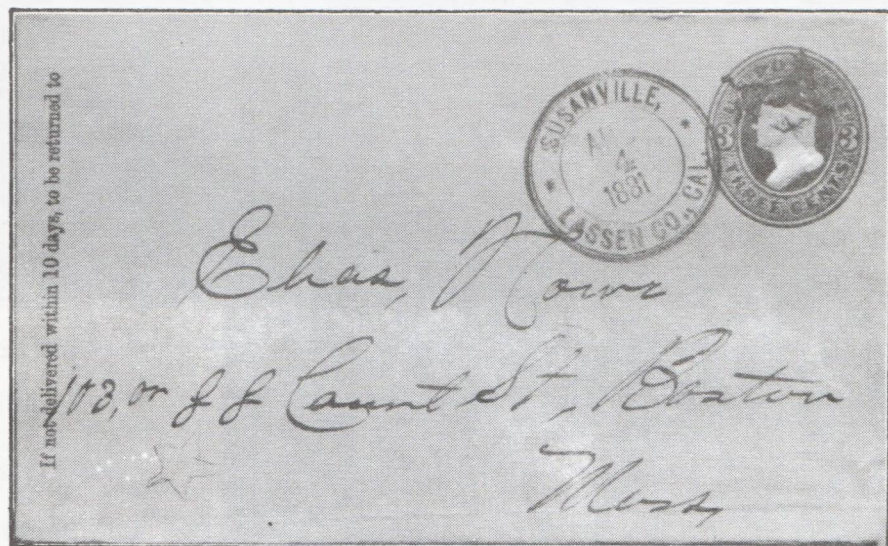 If not delivered within 10 days, to be returned to
SUSANVILLE,
4
1881
LASSEN CO., CAL.
U.S. POSTAGE
3 3
THREE CENTS
Elias, Howe
103, or 88 Court St, Boston
Mass,